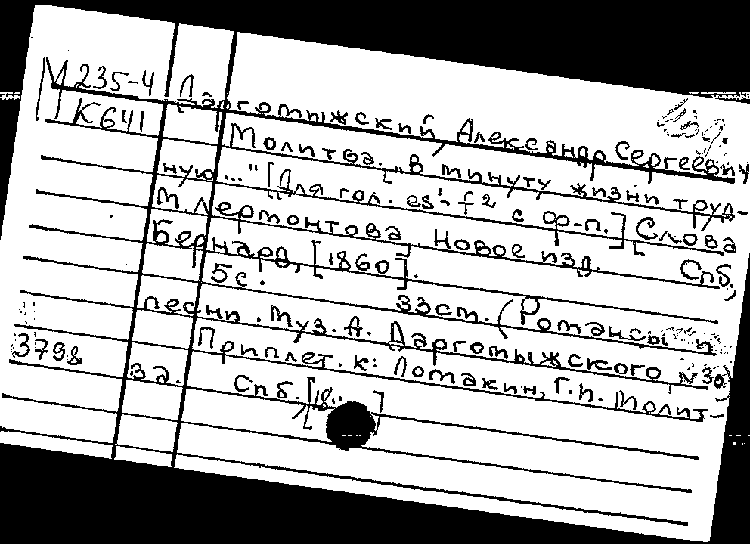 М 235-4
К 641
Даргомыжский, Александр Сергеевич
Молитва. „В минуту жизни труд-
ную..." [Для гол. es¹-f² с ф-п.] Слова
М. Лермонтова. Новое изд. Спб,
Бернард, [1860].
5 с. 33 см. (Романсы и
песни. Муз. А. Даргомыжского, №30)
Приплет. к: Лотакин, Г.П. Молит-
ва. Спб. [18..]
3798